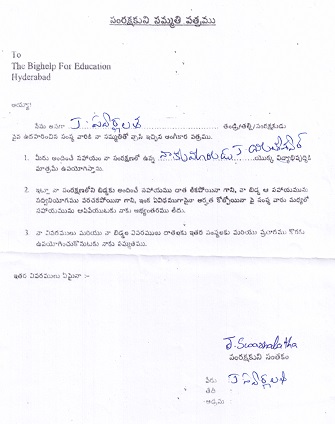 సంరక్షకుని సమ్మతి పత్రము
To
The Bighelp For Education
Hyderabad
అయ్యా!
నేను అనగా J. స్వర్ణలత తండ్రి/తల్లి/సంరక్షకుడు
పైన ఉదహరించిన సంస్థ వారికి నా సమ్మతితో వ్రాసి ఇచ్చిన అంగీకార పత్రము.
1. మీరు అందించే సహాయం నా సంరక్షణలో ఉన్న నా కుమారుడు J. యొక్క విద్యాభివృద్ధికి
మాత్రమే ఉపయోగిస్తాను.
2. ఇట్లా నా సంరక్షణలోని బిడ్డకు అందించే సహాయము రాత లేకపోయినా గాని, నా బిడ్డ ఆ సహాయమును
సద్వినియోగము పరచకపోయినా గాని, ఇంక ఏవిధముగానైనా అర్హత కోల్పోయినా పై సంస్థ వారు మధ్యలో
సహాయమును ఆపివేయుటకు నాకు అభ్యంతరము లేదు.
3. నా వివరములు మరియు నా బిడ్డల వివరములు దాతలకు ఇతర సంస్థలకు మరియు ప్రచారము కొరకు
ఉపయోగించుకొనుటకు నాకు సమ్మతము.
ఇతర వివరములు ఏమైనా :-
J. Swarnalatha
సంరక్షకుని సంతకం
పేరు J స్వర్ణలత
తేది
అడ్రసు